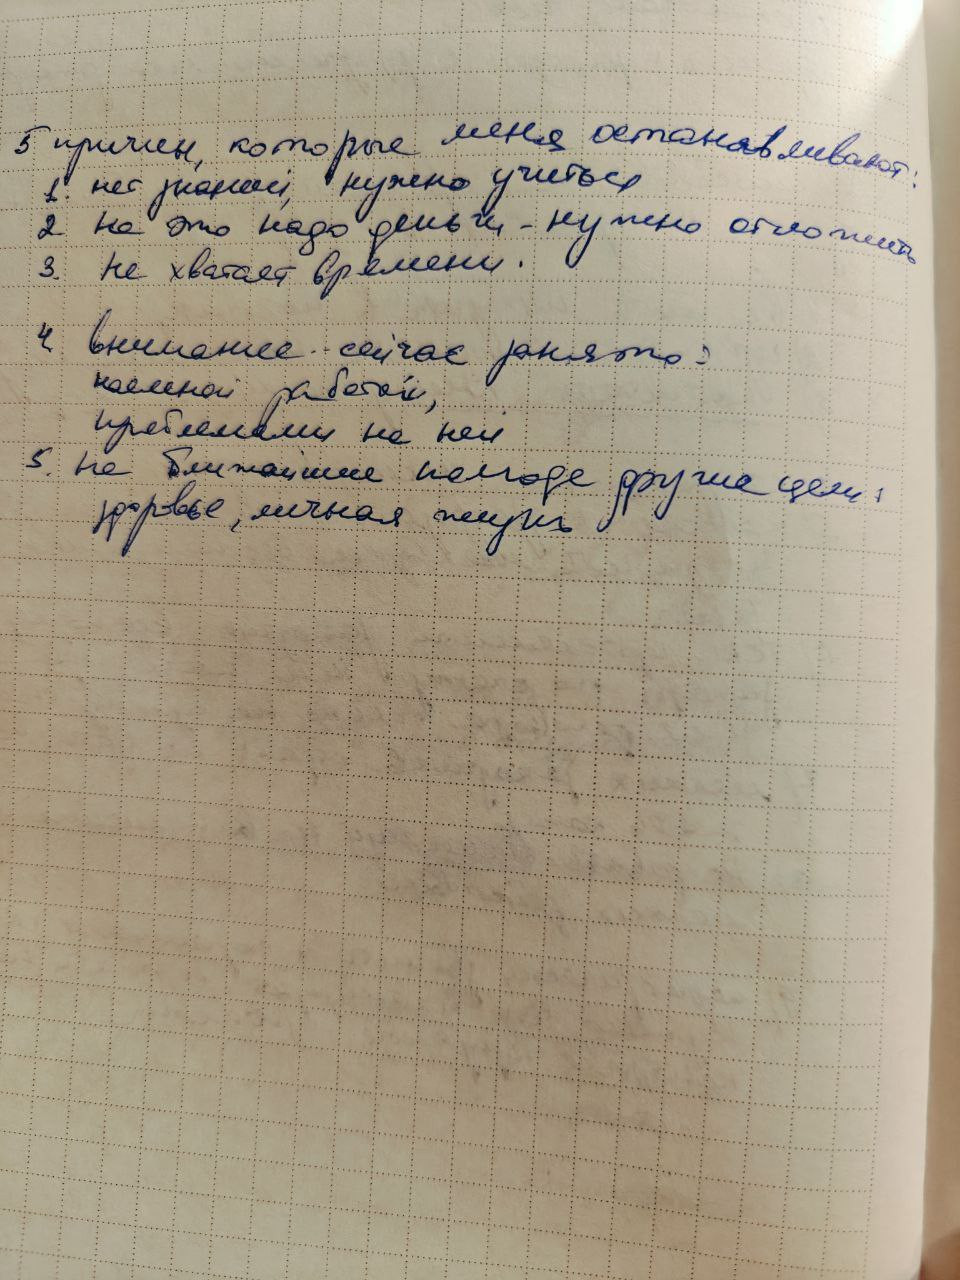 5 причин, которые меня останавливают:
1. нет знаний, нужно учиться
2 на это надо деньги - нужно отложить
3. не хватает времени.
4. внимание сейчас занято:
наемной работой,
проблемами на ней
5. на ближайшие полгода другие цели:
здоровье, личная жизнь